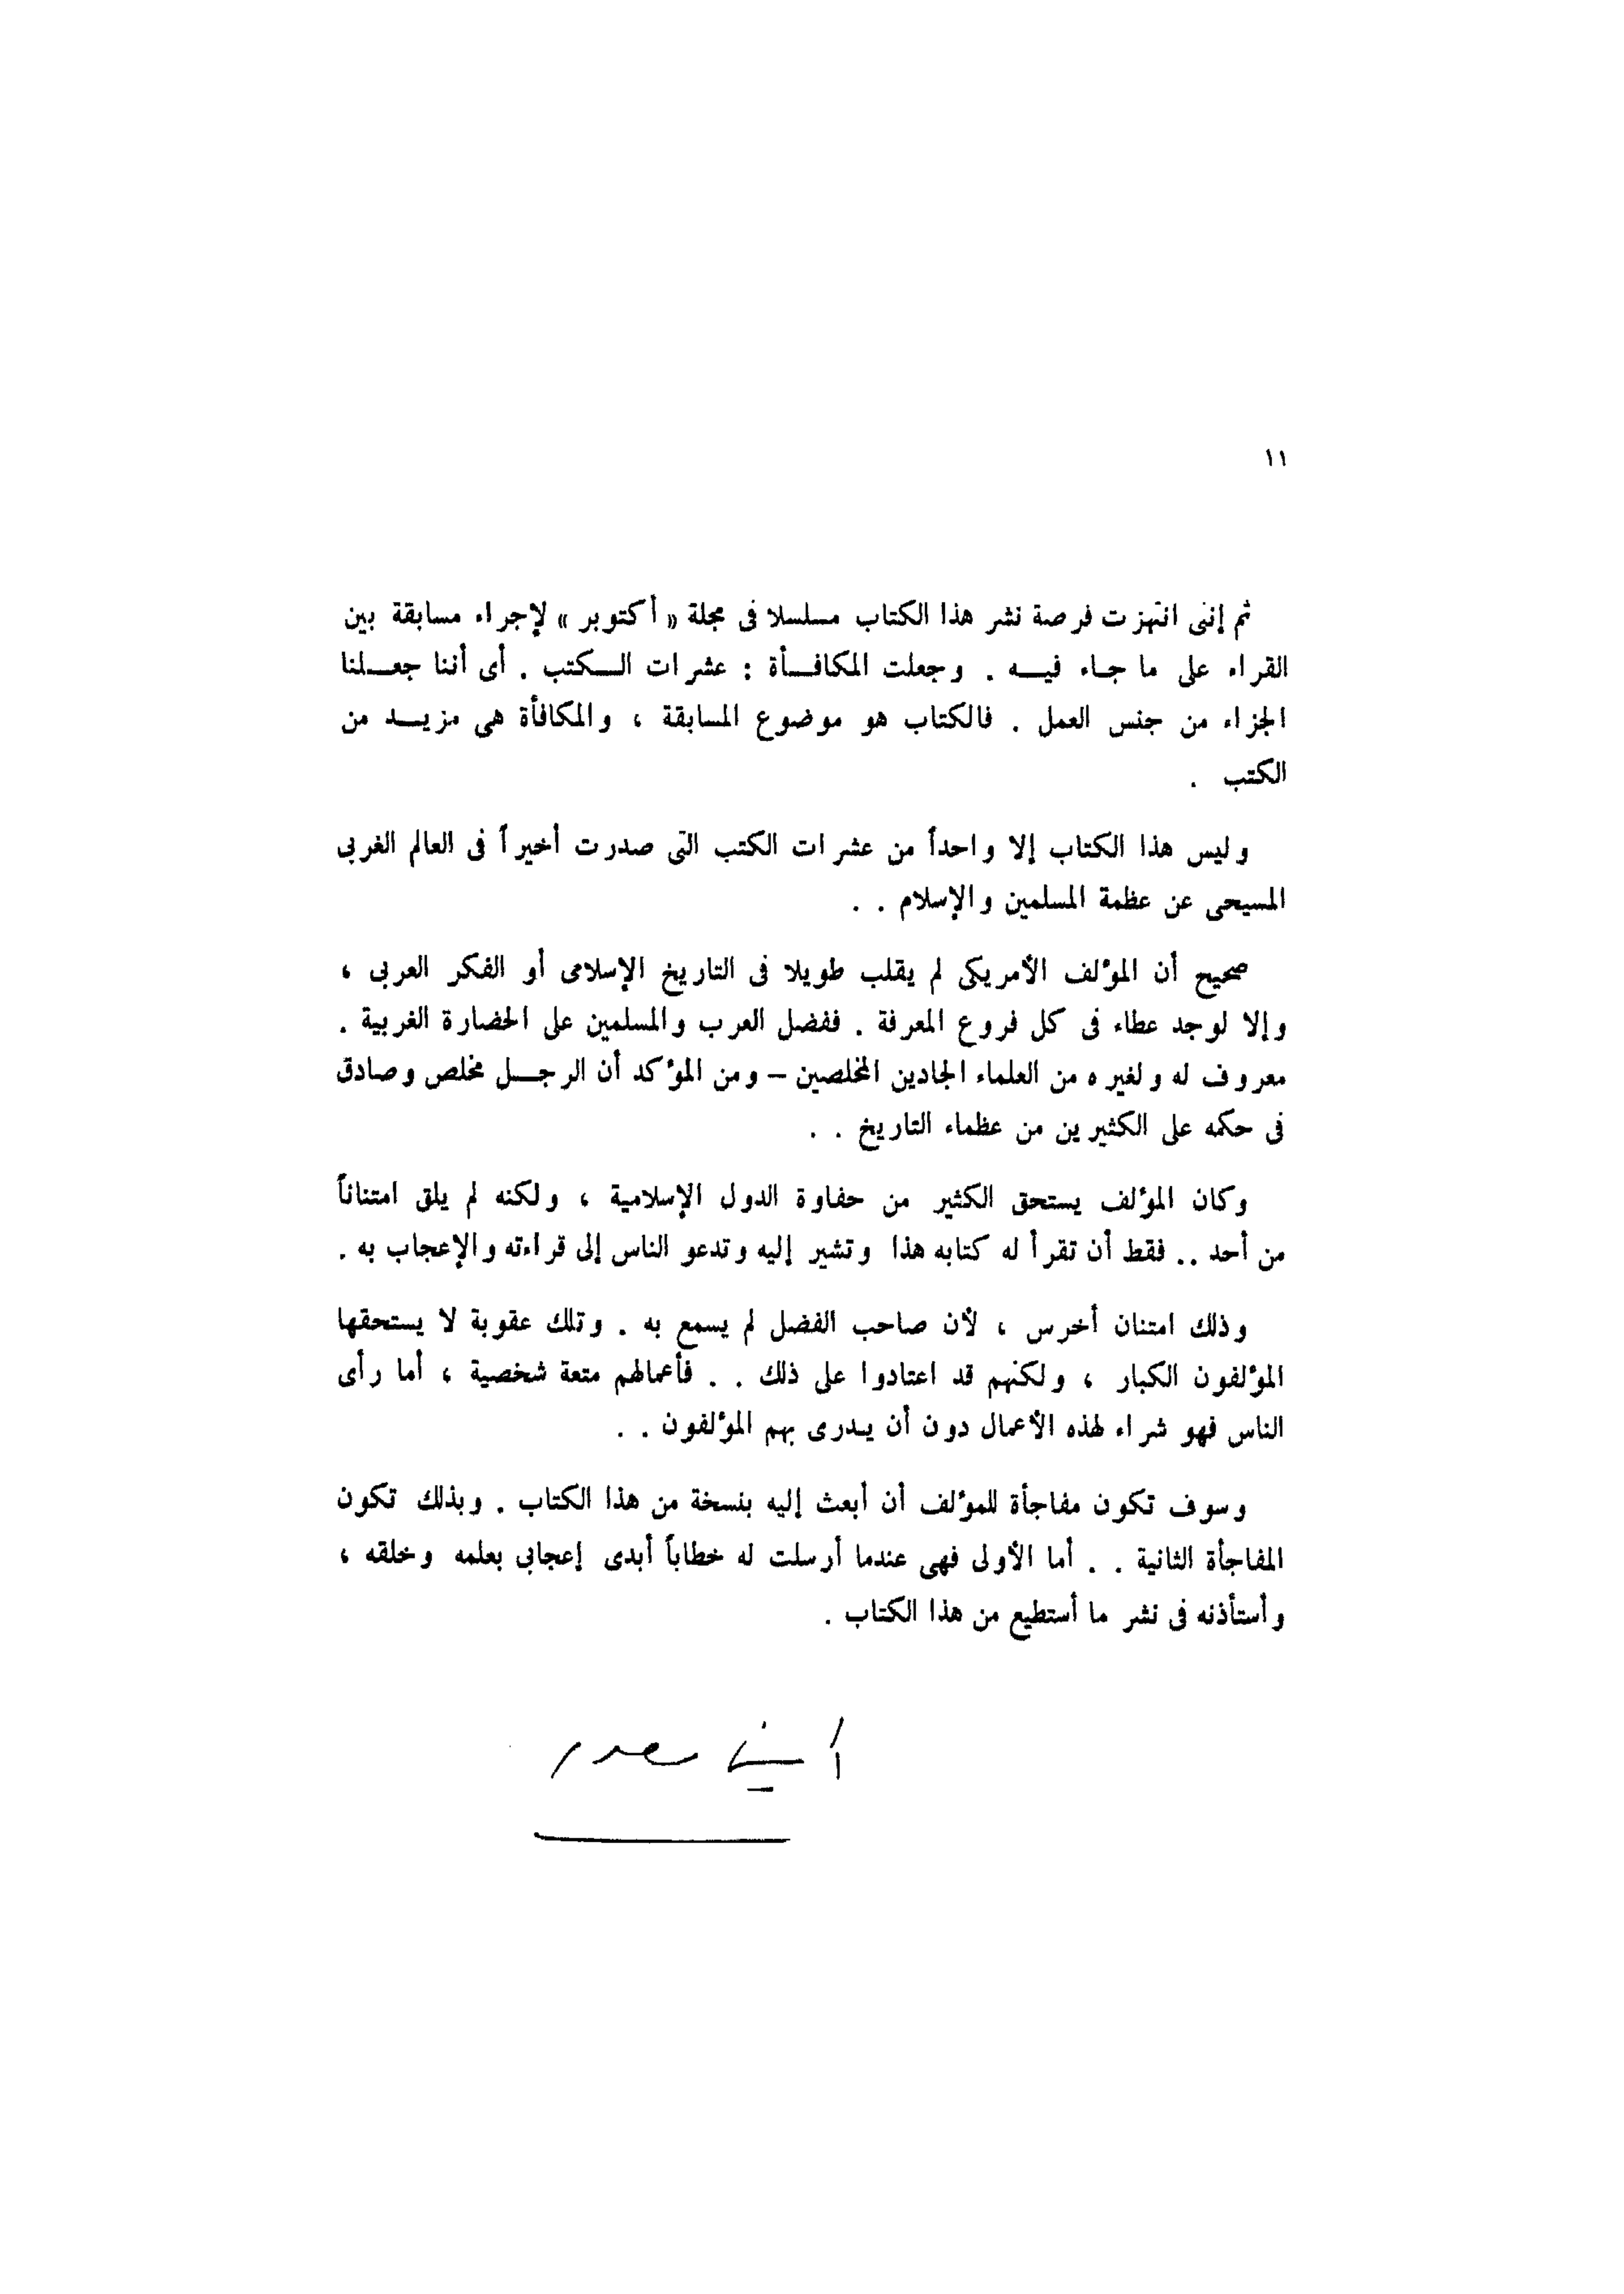 ١١
ثم إننى انتهزت فرصة نشر هذا الكتاب مسلسلا فى مجلة « أكتوبر » لإجراء مسابقة بين
القراء على ما جاء فيه . وجعلت المكافأة : عشرات الكتب . أى أننا جعلنا
الجزاء من جنس العمل . فالكتاب هو موضوع المسابقة ، والمكافأة هى مزيد من
الكتب .
وليس هذا الكتاب إلا واحداً من عشرات الكتب التى صدرت أخيراً فى العالم الغربى
المسيحى عن عظمة المسلمين والإسلام . .
صحيح أن المؤلف الأمريكى لم يقلب طويلا فى التاريخ الإسلامى أو الفكر العربى ،
وإلا لوجد عطاء فى كل فروع المعرفة . ففضل العرب والمسلمين على الحضارة الغربية .
معروف له ولغيره من العلماء الجادين المخلصين – ومن المؤكد أن الرجل مخلص وصادق
فى حكمه على الكثيرين من عظماء التاريخ . .
وكان المؤلف يستحق الكثير من حفاوة الدول الإسلامية ، ولكنه لم يلق امتناناً
من أحد .. فقط أن تقرأ له كتابه هذا وتشير إليه وتدعو الناس إلى قراءته والإعجاب به .
وذلك امتنان أخرس ، لأن صاحب الفضل لم يسمع به . وتلك عقوبة لا يستحقها
المؤلفون الكبار ، ولكنهم قد اعتادوا على ذلك . . فأعمالهم متعة شخصية ، أما رأى
الناس فهو شراء لهذه الأعمال دون أن يدرى بهم المؤلفون . .
وسوف تكون مفاجأة للمؤلف أن أبعث إليه بنسخة من هذا الكتاب . وبذلك تكون
المفاجأة الثانية . . أما الأولى فهى عندما أرسلت له خطاباً أبدى إعجابى بعلمه وخلقه ،
وأستأذنه فى نشر ما أستطيع من هذا الكتاب .